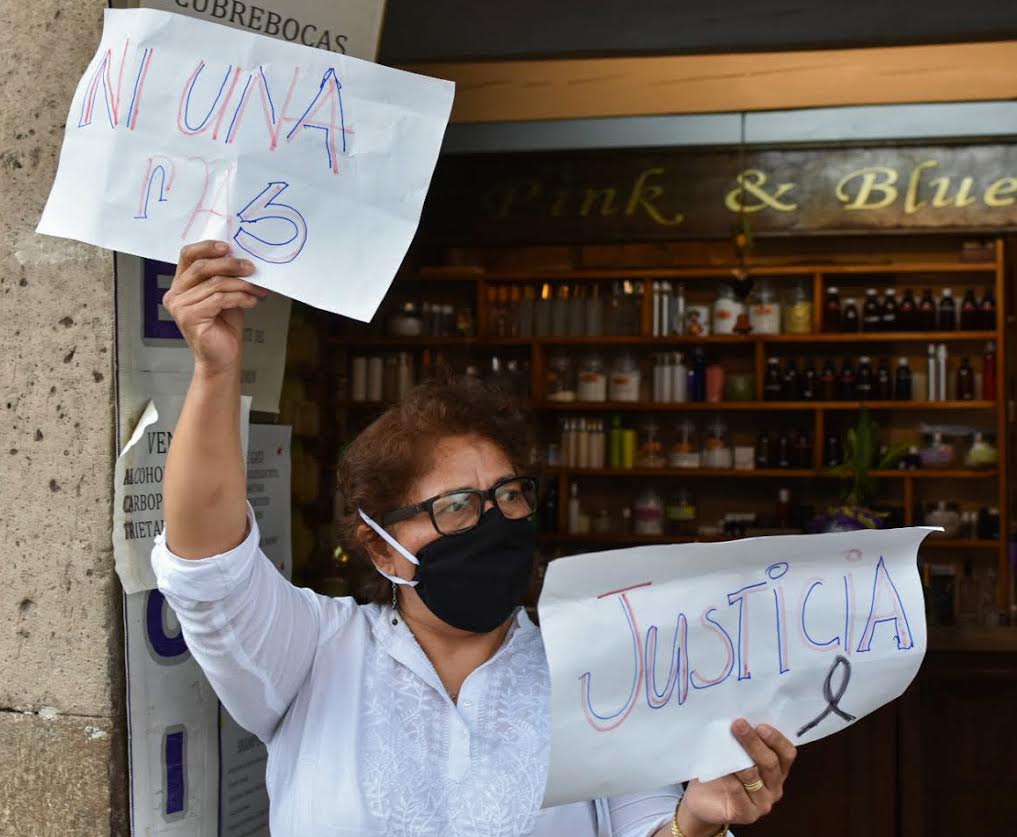 CUBREBOCAS
NI UNA
MAS
Pink & Blue
VEN
ALCOHO
CARBOP
TRIETA
JUSTICIA